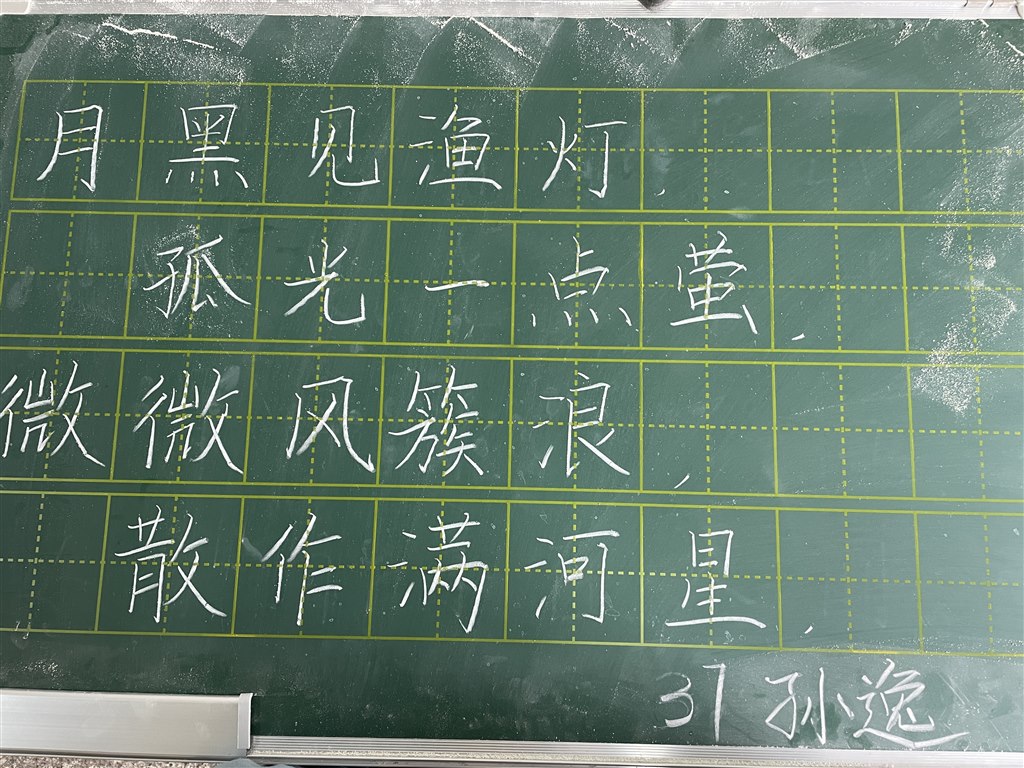 月黑见渔灯，
孤光一点萤，
微微风簇浪，
散作满河星，
37 孙逸